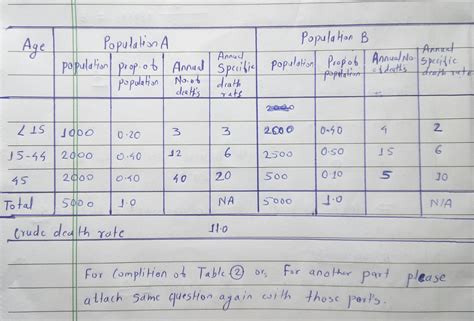 Age Population A Population B
population prop of population Annual No. of deaths Annual Specific death rate population Prop of population Annual No of deaths Annual Specific death rate
<15 1000 0.20 3 3 2000 0.40 4 2
15-44 2000 0.40 12 6 2500 0.50 15 6
45 2000 0.40 40 20 500 0.10 5 10
Total 5000 1.0 NA 5000 1.0 N/A
Crude death rate 11.0
For Complition of Table (2) or, For another part please
attach same question again with those parts.